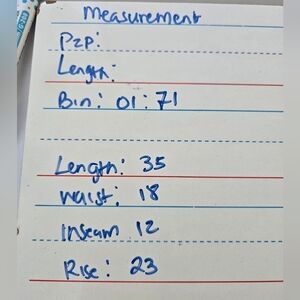 Measurement
P2P:
Length:
Bin: 01:71
Length: 35
Waist: 18
Inseam 12
Rise: 23